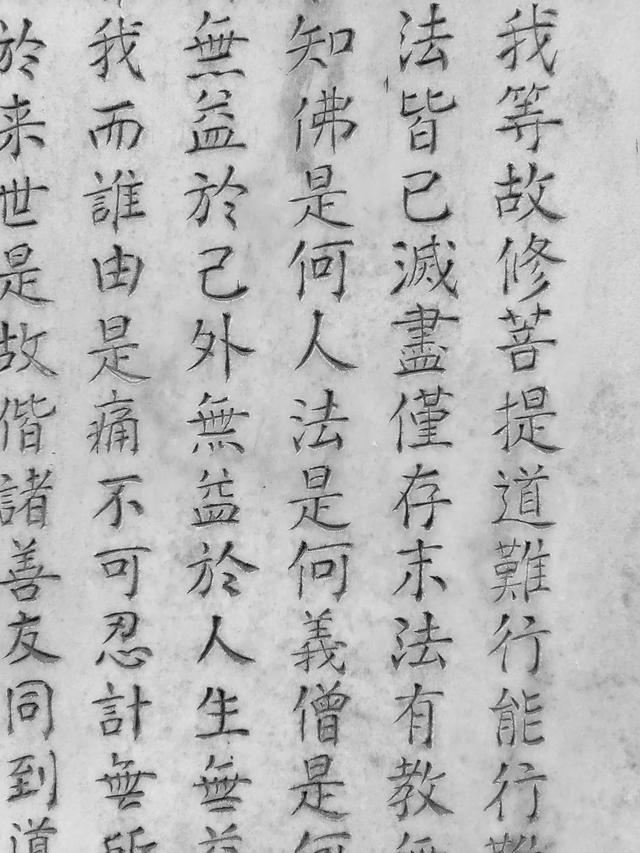 我等故修菩提道難行能行難
法皆已滅盡僅存末法有教無
知佛是何人法是何義僧是何
無益於己外無益於人生無益
我而誰由是痛不可忍計無所
於来世是故偕諸善友同到道